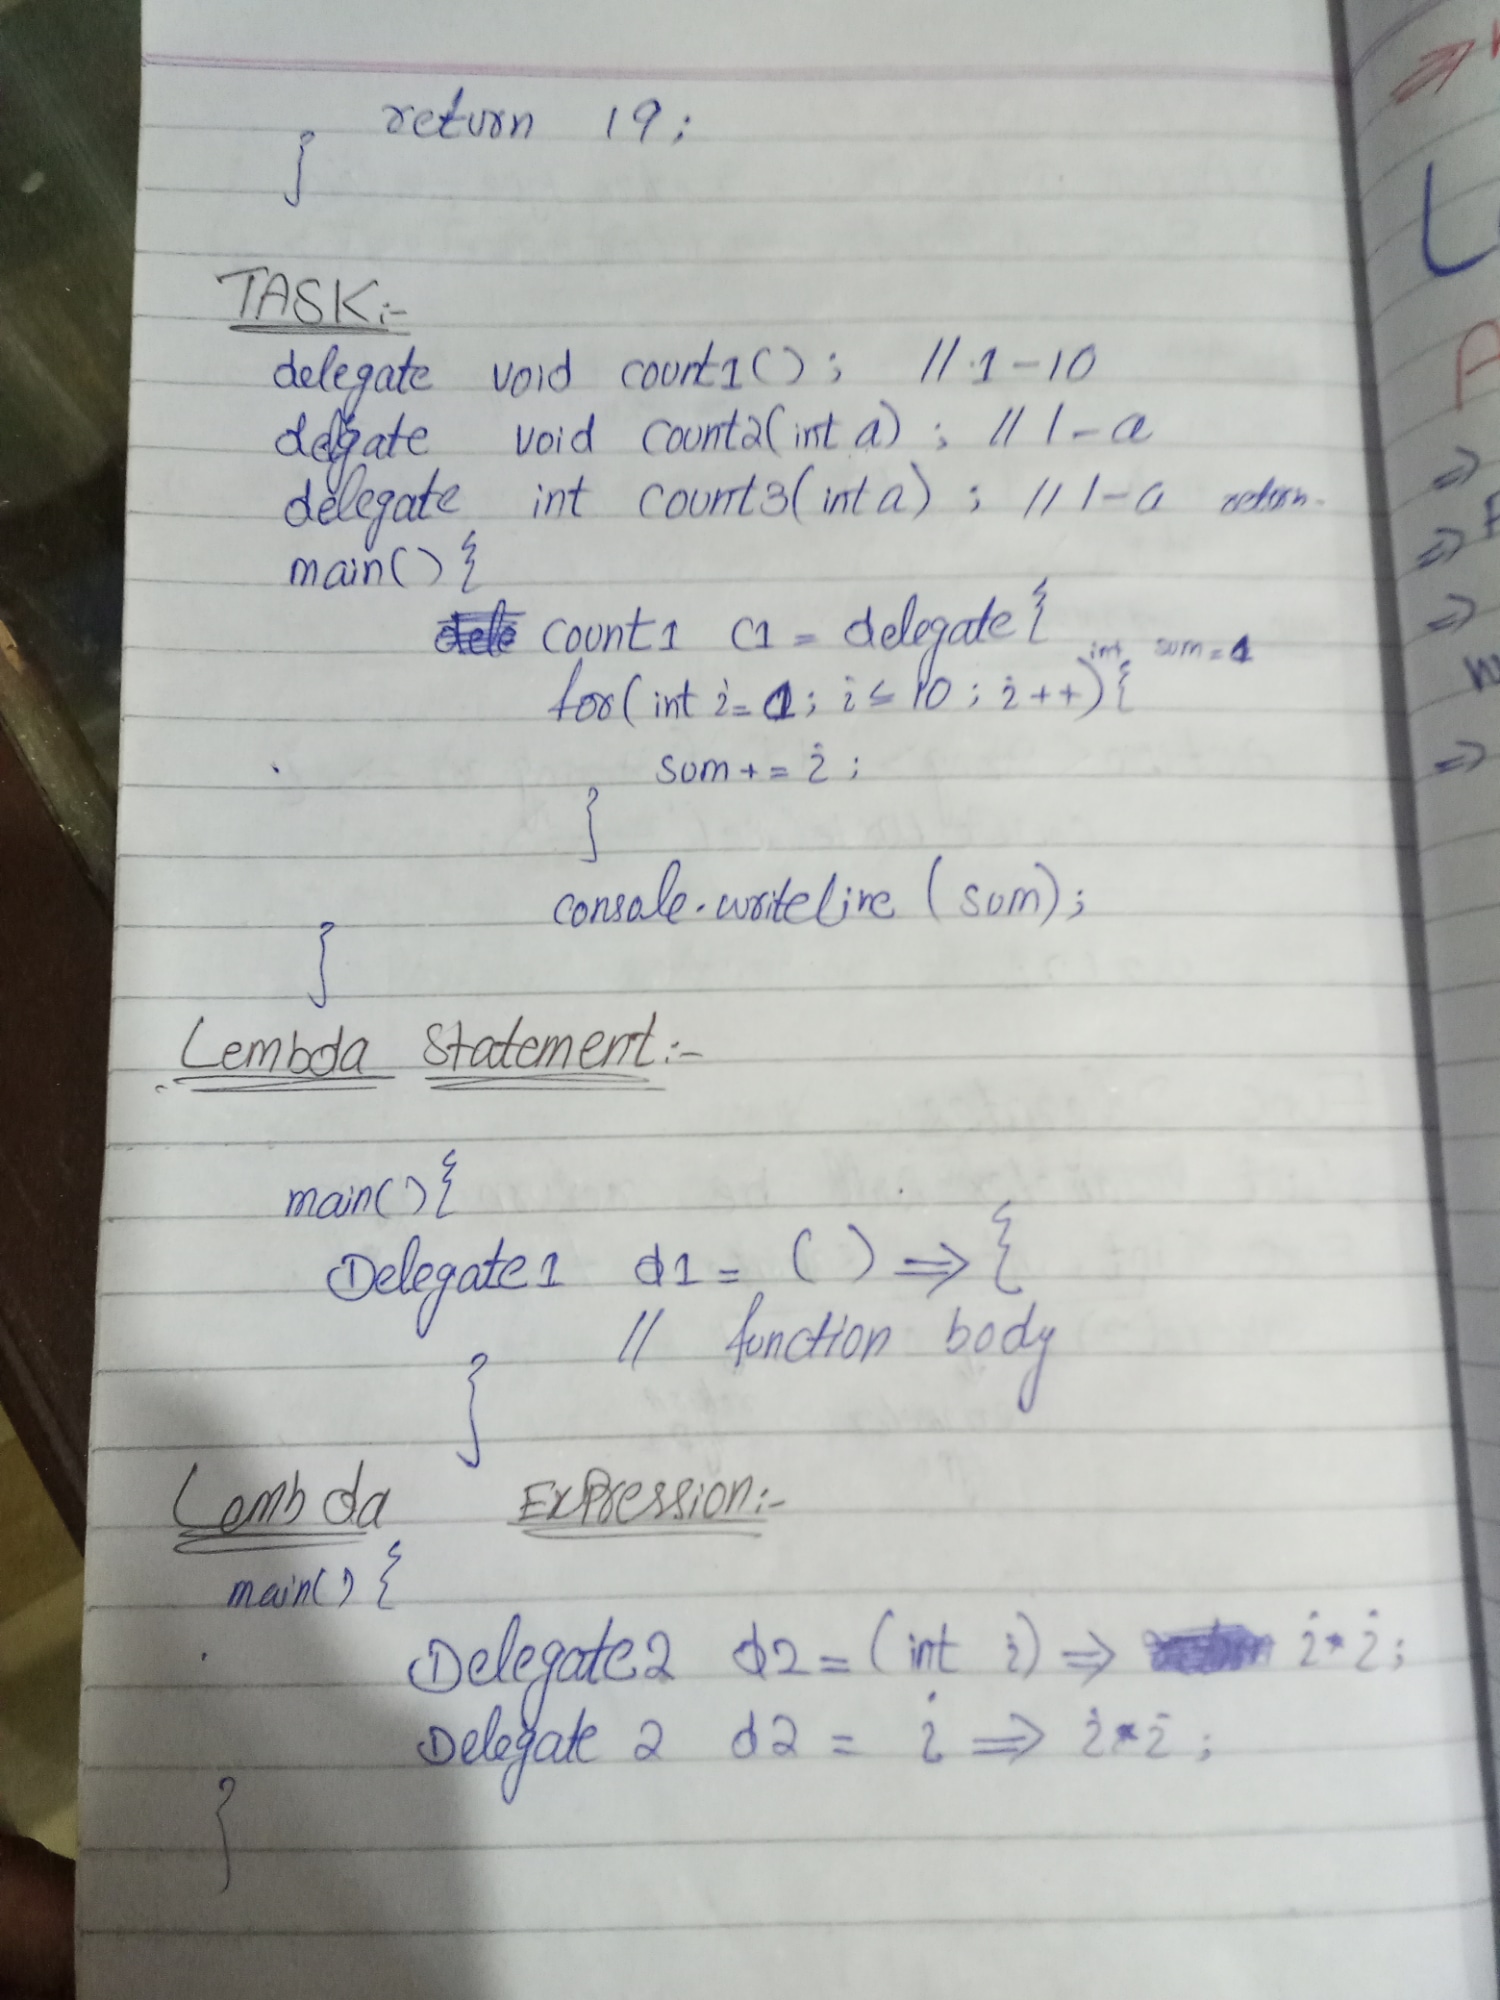 return 19;
}
TASK:-
delegate void count1(); // 1-10
delegate void count2(int a); // 1-a
delegate int count3(int a); // 1-a return.
main(){
count1 c1 = delegate{
int sum=1
for(int i=1; i≤10; i++){
sum+=i;
}
console.writeline(sum);
}
Lembda Statement:-
main(){
Delegate1 d1 = ( ) => {
// function body
}
Lembda Expression:-
main(){
Delegate2 d2 = (int i) => i*i;
Delegate 2 d2 = i => i*i;
}